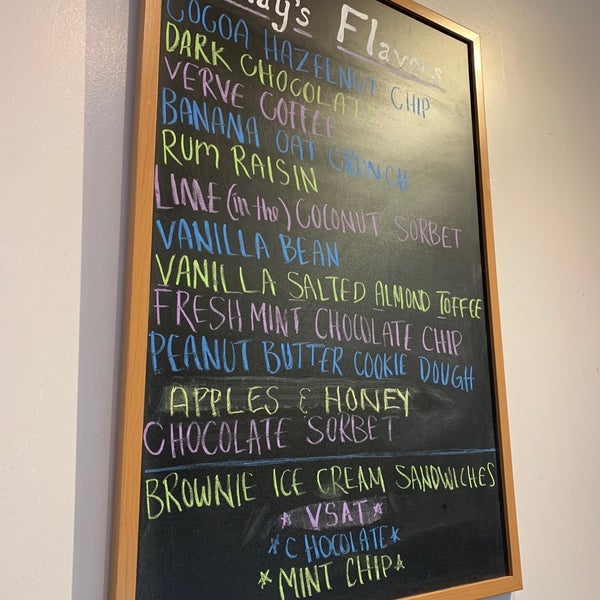 ay's Flavors
COCOA HAZELNUT CHIP
DARK CHOCOLATE
VERVE COFFEE
BANANA OAT CRUNCH
RUM RAISIN
LIME (in the) COCONUT SORBET
VANILLA BEAN
VANILLA SALTED ALMOND TOFFEE
FRESH MINT CHOCOLATE CHIP
PEANUT BUTTER COOKIE DOUGH
APPLES & HONEY
CHOCOLATE SORBET
BROWNIE ICE CREAM SANDWICHES
☆ VSAT ☆
☆ CHOCOLATE ☆
☆ MINT CHIP ☆